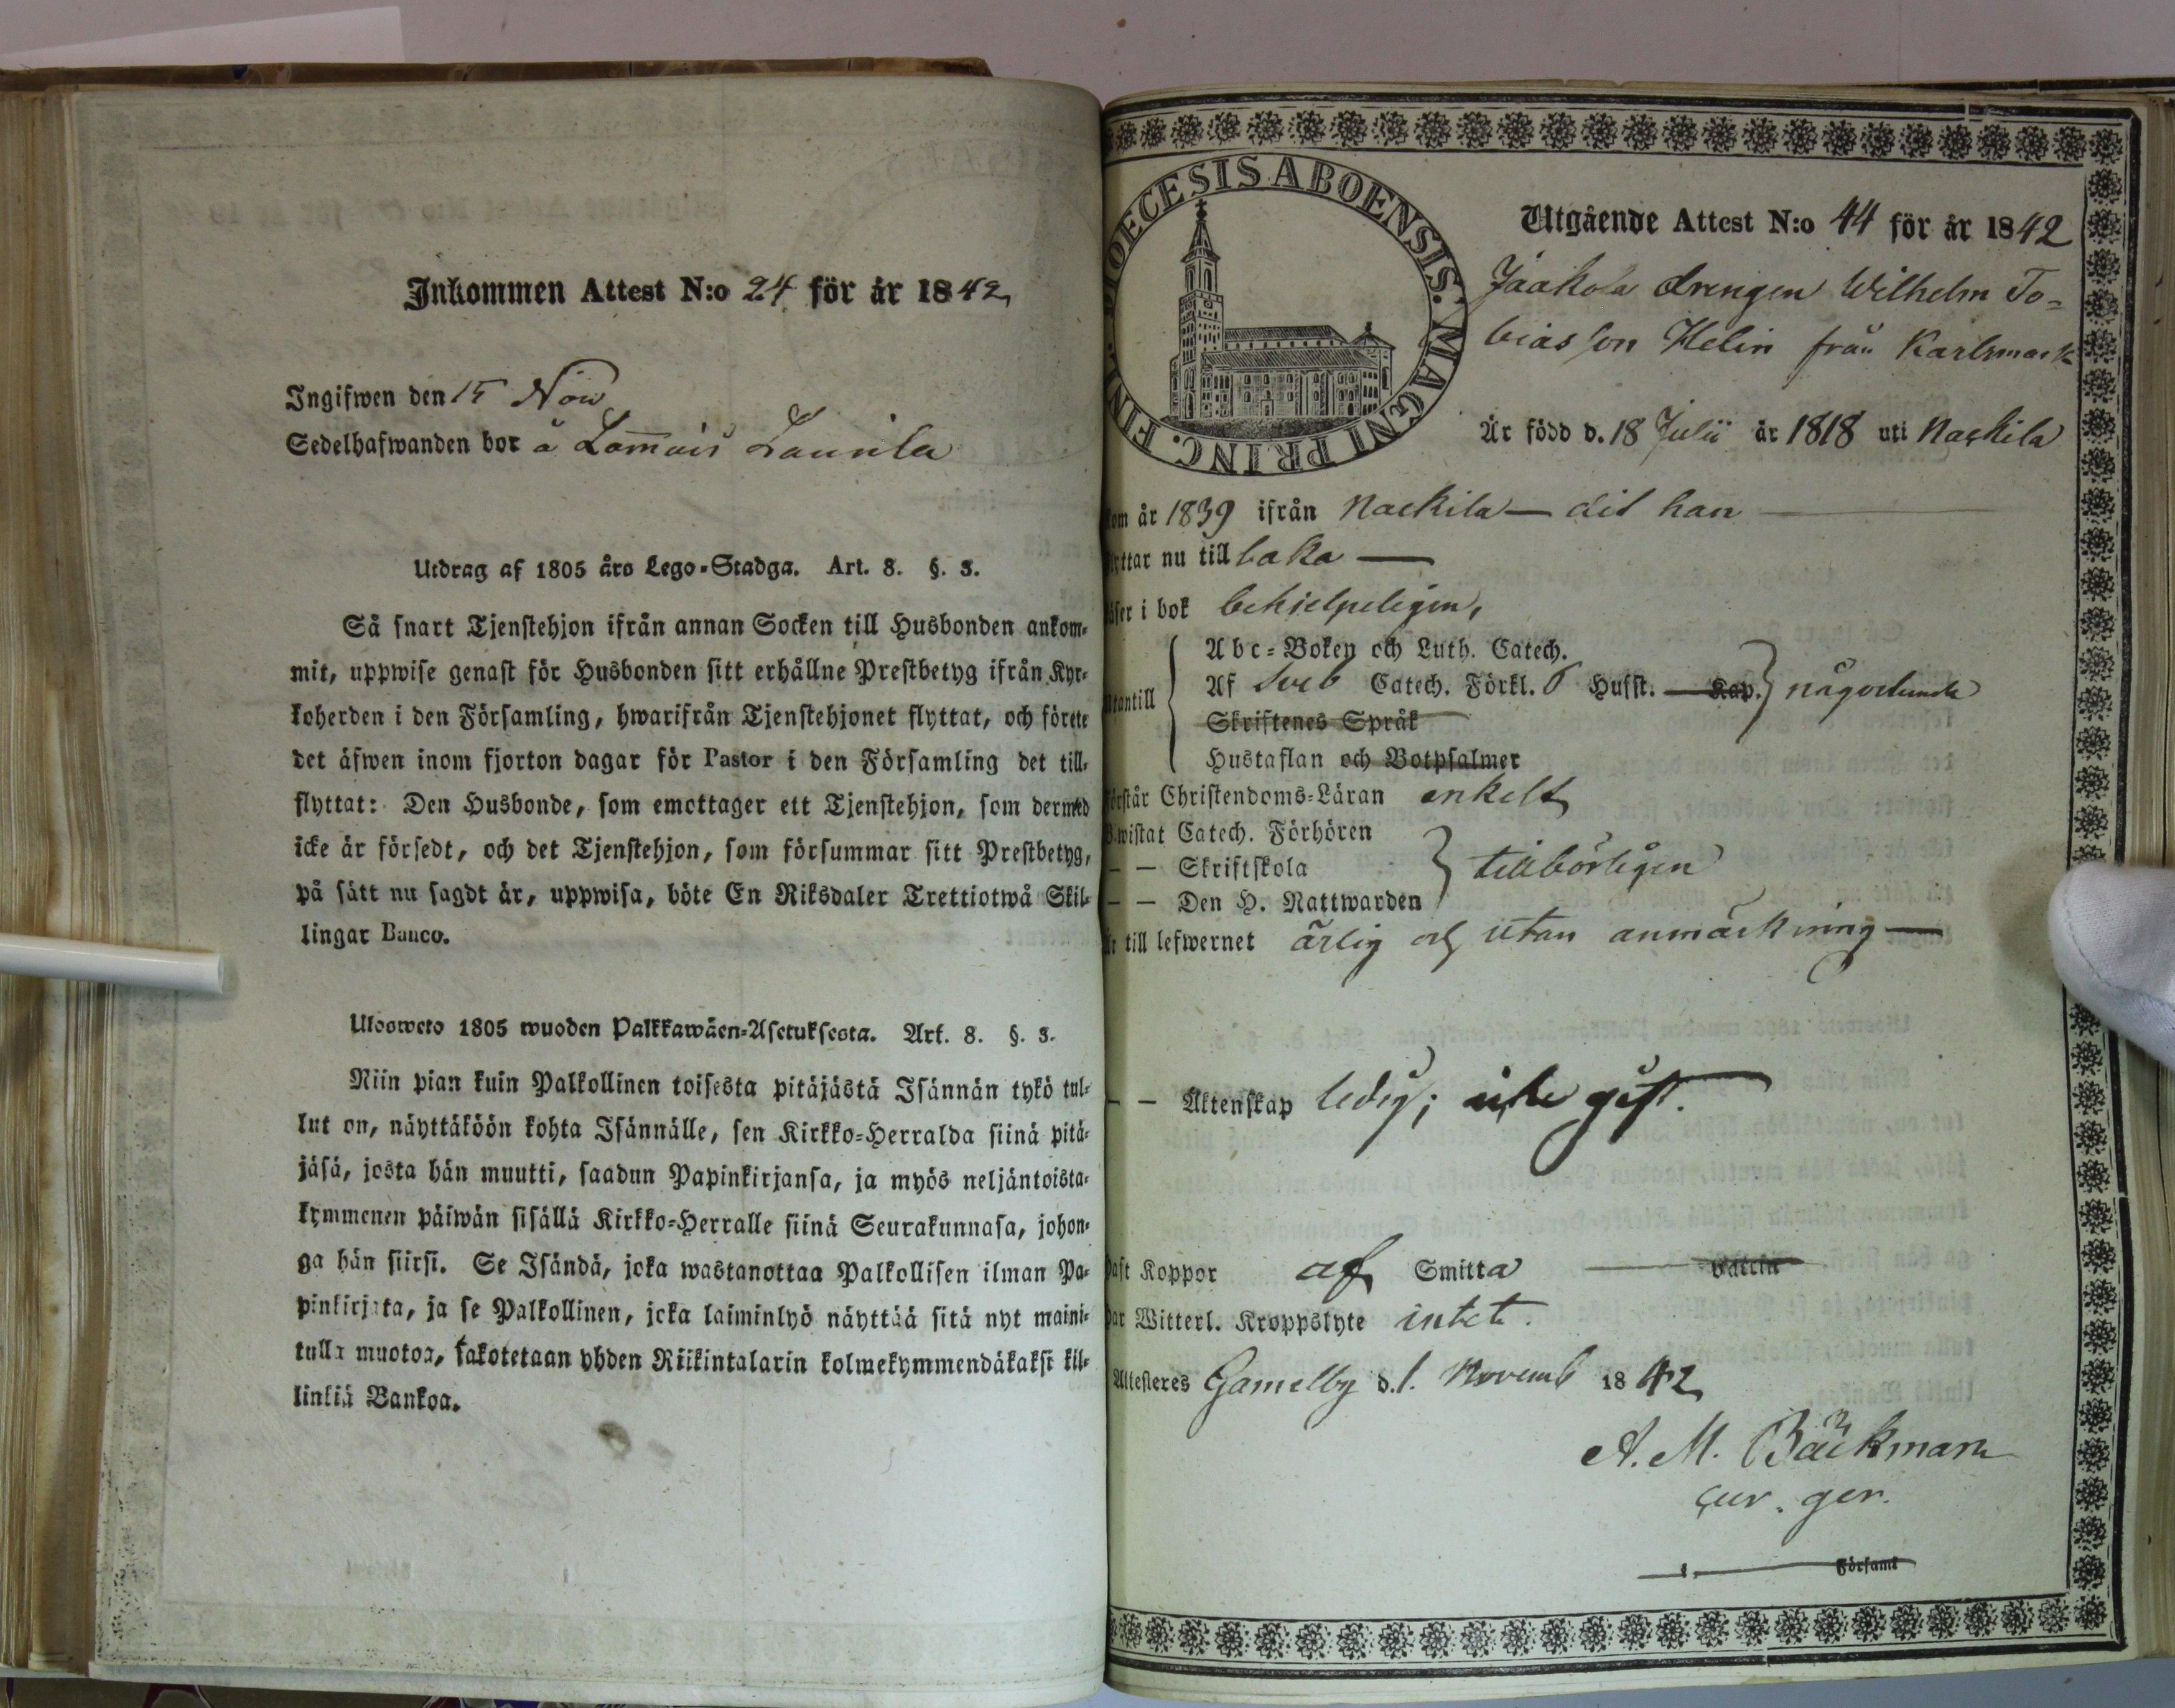 Inkommen Attest N:o 24 för år 1842
Ingifwen den 15 Nov
Sedelhafwanden bor å Lammais Launila
Utdrag af 1805 års Lego-Stadga. Art. 8. §. 3.
Så snart Tjenstehjon ifrån annan Socken till Husbonden ankom-
mit, uppwise genast för Husbonden sitt erhållne Prestbetyg ifrån Kyr-
koherden i den Församling, hwarifrån Tjenstehjonet flyttat, och förete
det äfwen inom fjorton dagar för Pastor i den Församling det till-
flyttat: Den Husbonde, som emottager ett Tjenstehjon, som dermed
icke är försedt, och det Tjenstehjon, som försummar sitt Prestbetyg,
på sätt nu sagdt är, uppwisa, böte En Riksdaler Trettiotwå Skil-
lingar Banco.
Ulosweto 1805 wuoden Palkkawäen-Asetuksesta. Art. 8. §. 3.
Niin pian kuin Palkollinen toisesta pitäjästä Isännän tykö tul-
lut on, näyttäköön kohta Isännälle, sen Kirkko-Herralda siinä pitä-
jäsä, josta hän muutti, saadun Papinkirjansa, ja myös neljäntoista-
kymmenen päiwän sisällä Kirkko-Herralle siinä Seurakunnasa, johon-
ga hän siirsi. Se Isändä, joka wastanottaa Palkollisen ilman Pa-
pinkirjata, ja se Palkollinen, joka laiminlyö näyttää sitä nyt maini-
tulla muotoa, sakotetaan yhden Riikintalarin kolmekymmendäkaksi kil-
linkiä Bankoa.
DIOECESIS ABOENSIS. MAGNI PRINC. FINL.
Utgående Attest N:o 44 för år 1842
Jaakola drengen Wilhelm To-
biasson Helin från Karlsmark
Är född d. 18 Julii år 1818 uti Nackila
kom år 1839 ifrån Nackila — dit han
flyttar nu till baka —
Läser i bok behjelpeligen,
Abc-Boken och Luth. Catech.
Utantill Af Sveb Catech. Förkl. 6 Hufst. Kap. någorlunda
Skriftenes Språk
Hustaflan och Botpsalmer
Förstår Christendoms-Läran enkelt
Bewistat Catech. Förhören
— — Skriftskola tillbörligen
— — Den H. Nattwarden
Är till lefwernet ärlig och utan anmärkning —
— — Äktenskap ledig; icke gift.
Haft Koppor af Smitta
Har Witterl. Kroppslyte intet.
Attesteres Gamelby d. 1. Novemb 1842
A. M. Bäckman
cur. ger.
i Församl